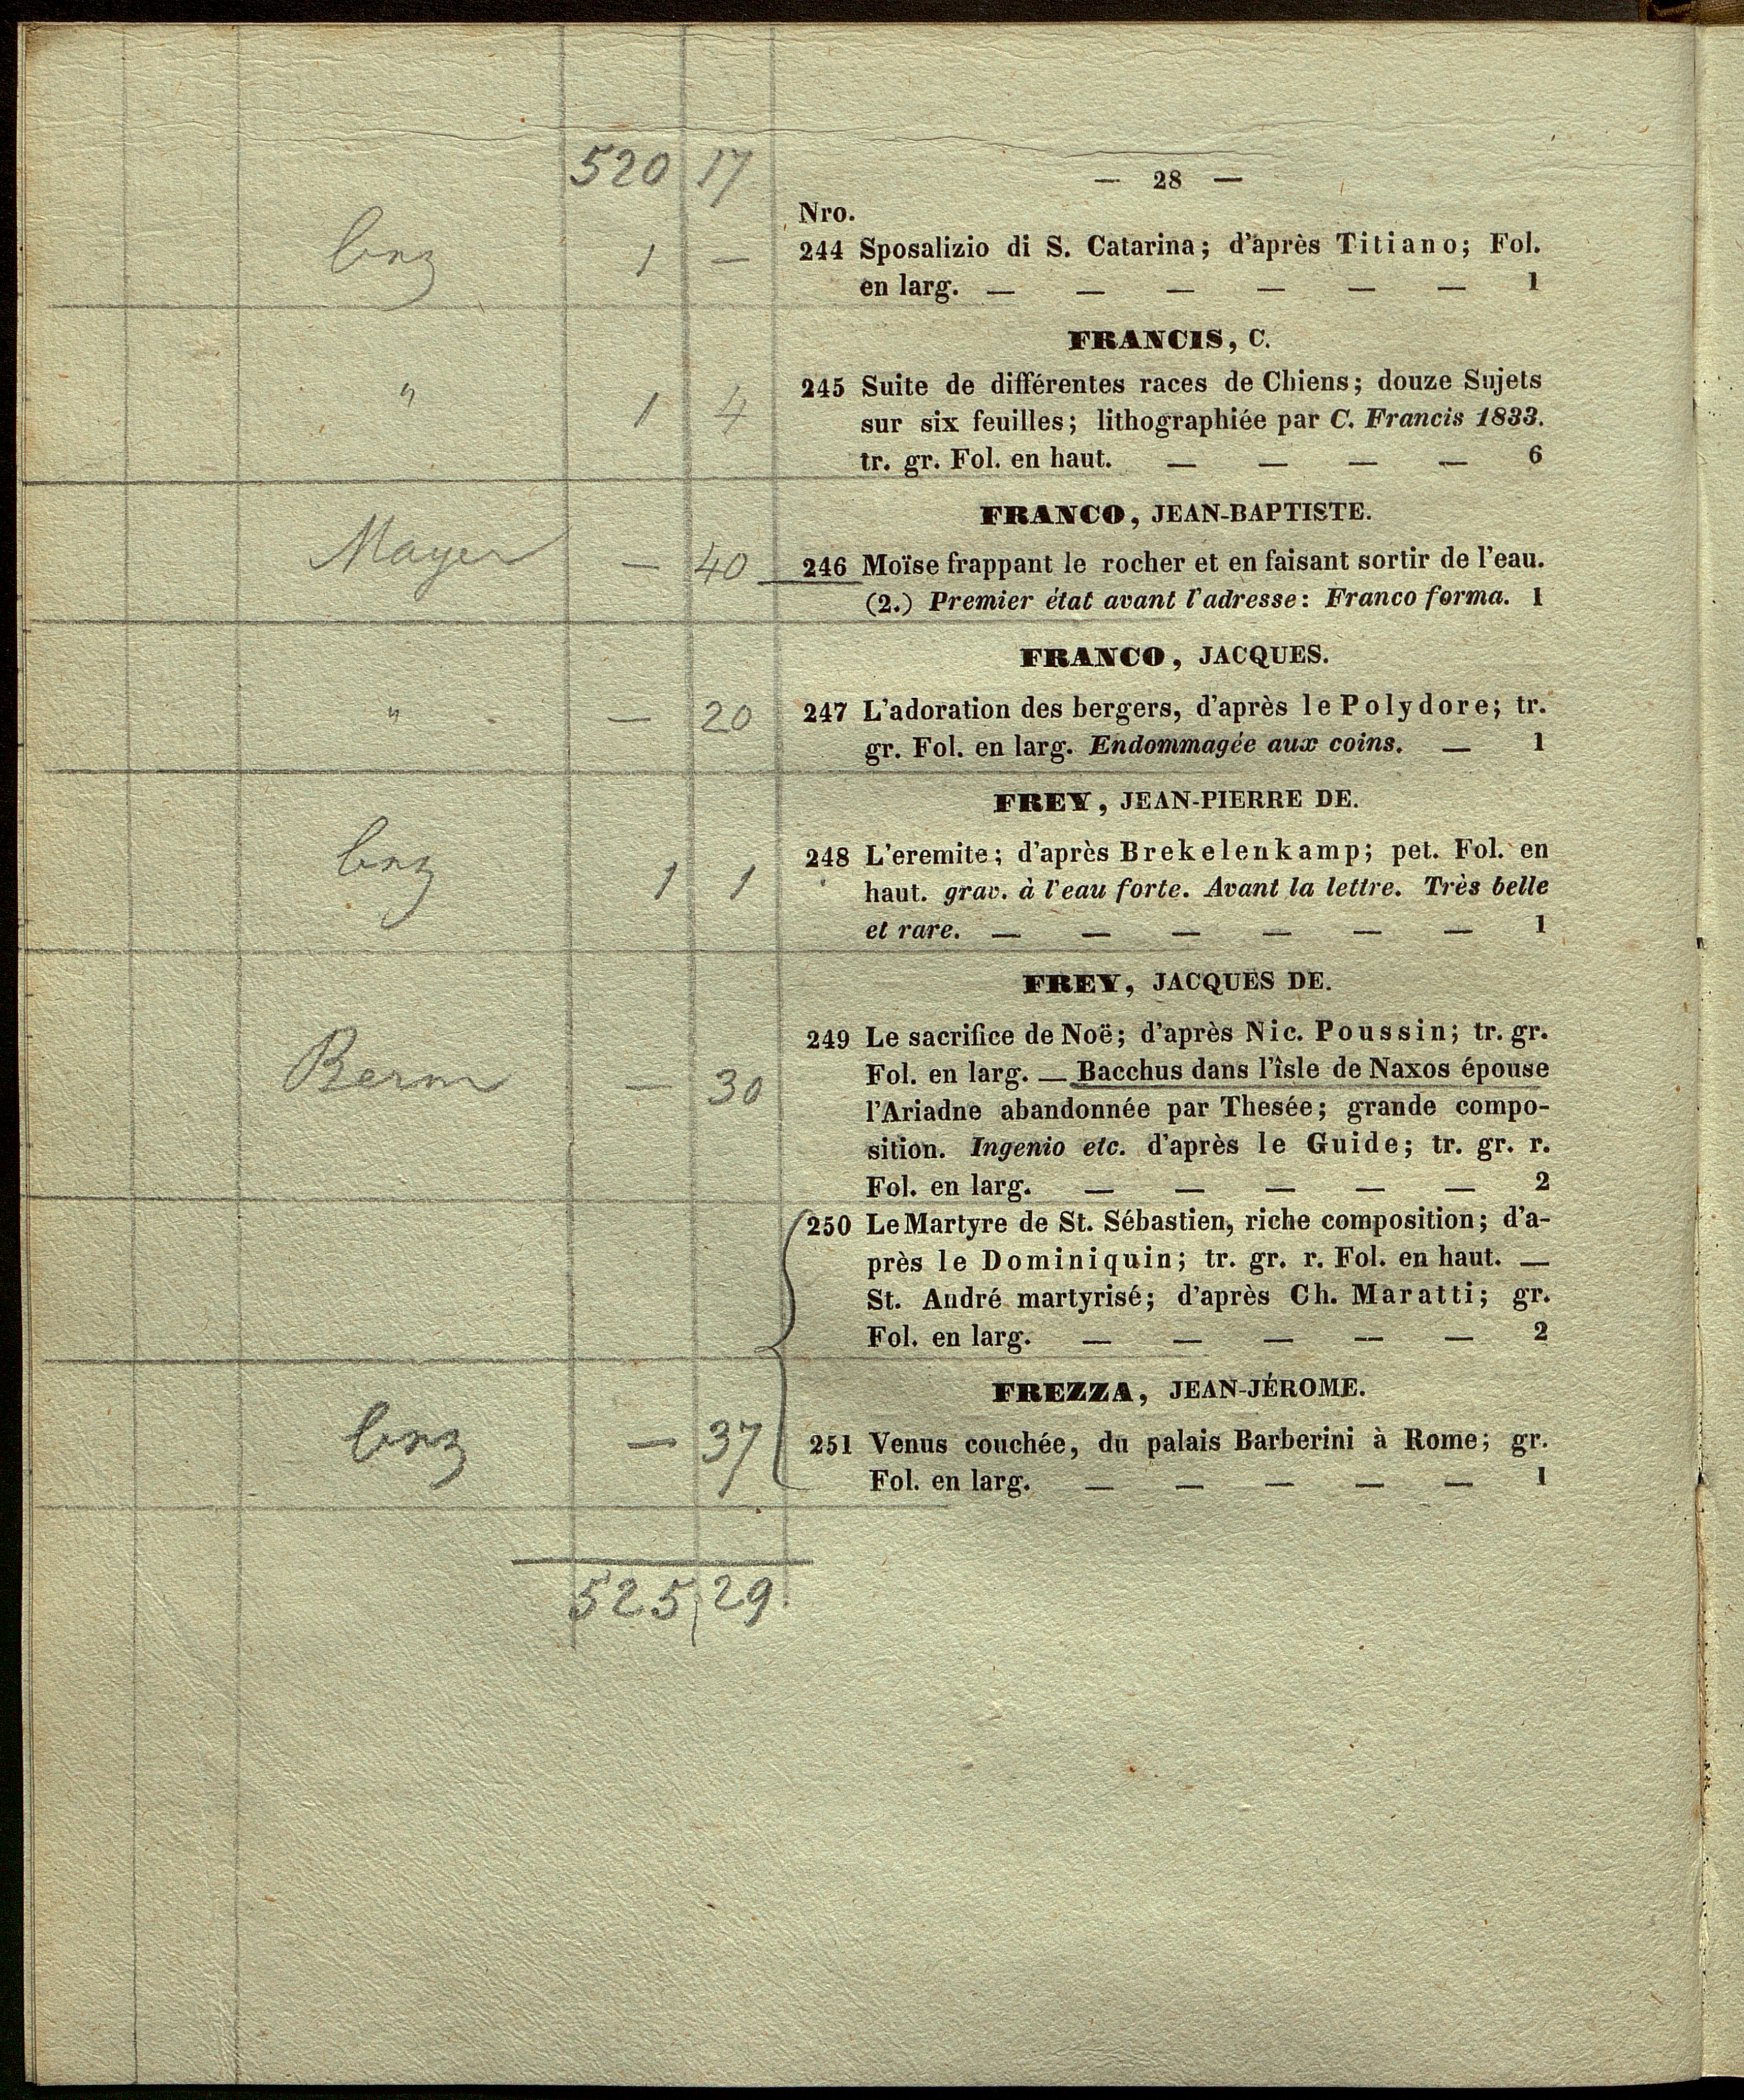 520 17
— 28 —
Nro.
1 — 244 Sposalizio di S. Catarina; d'après Titiano; Fol.
en larg. — — — — — — 1
FRANCIS, C.
" 1 4 245 Suite de différentes races de Chiens; douze Sujets
sur six feuilles; lithographiée par C. Francis 1833.
tr. gr. Fol. en haut. — — — — 6
FRANCO, JEAN-BAPTISTE.
Mayer — 40 246 Moïse frappant le rocher et en faisant sortir de l'eau.
(2.) Premier état avant l'adresse: Franco forma. 1
FRANCO, JACQUES.
" — 20 247 L'adoration des bergers, d'après le Polydore; tr.
gr. Fol. en larg. Endommagée aux coins. — 1
FREY, JEAN-PIERRE DE.
1 1 248 L'eremite; d'après Brekelenkamp; pet. Fol. en
haut. grav. à l'eau forte. Avant la lettre. Très belle
et rare. — — — — — — 1
FREY, JACQUES DE.
249 Le sacrifice de Noë; d'après Nic. Poussin; tr. gr.
Berm — 30 Fol. en larg. — Bacchus dans l'îsle de Naxos épouse
l'Ariadne abandonnée par Thesée; grande compo-
sition. Ingenio etc. d'après le Guide; tr. gr. r.
Fol. en larg. — — — — — 2
250 Le Martyre de St. Sébastien, riche composition; d'a-
près le Dominiquin; tr. gr. r. Fol. en haut. —
St. André martyrisé; d'après Ch. Maratti; gr.
Fol. en larg. — — — — — 2
FREZZA, JEAN-JÉROME.
— 37 251 Venus couchée, du palais Barberini à Rome; gr.
Fol. en larg. — — — — — 1
525 29